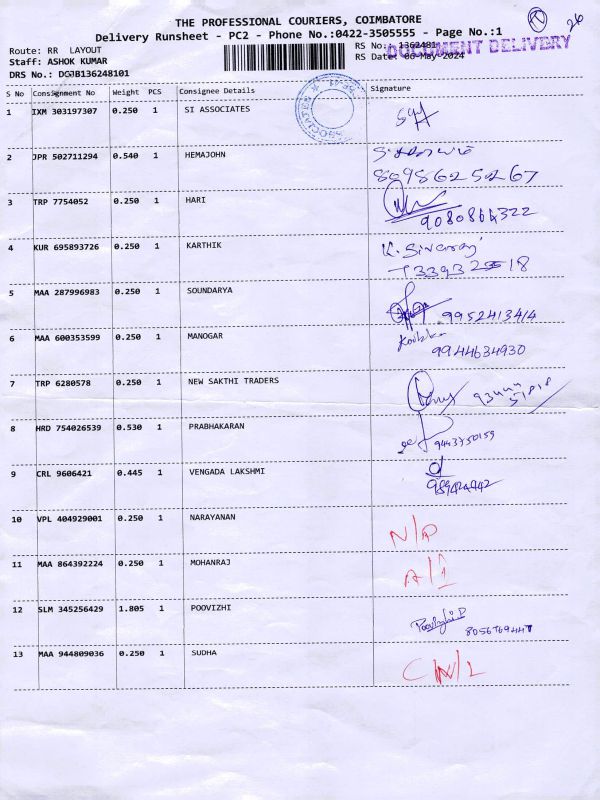 THE PROFESSIONAL COURIERS, COIMBATORE
Delivery Runsheet - PC2 - Phone No.:0422-3505555 - Page No.:1
Route: RR LAYOUT RS No.: 1362481
DOCUMENT DELIVERY
Staff: ASHOK KUMAR RS Date: 06-May-2024
DRS No.: DCJB136248101
S No Consignment No Weight PCS Consignee Details Signature
1 IXM 303197307 0.250 1 SI ASSOCIATES
2 JPR 502711294 0.540 1 HEMAJOHN
8098625267
3 TRP 7754052 0.250 1 HARI
9080864322
4 KUR 695893726 0.250 1 KARTHIK K. Sivaraj
5 MAA 287996983 0.250 1 SOUNDARYA
6 MAA 600353599 0.250 1 MANOGAR
9944634930
7 TRP 6280578 0.250 1 NEW SAKTHI TRADERS
8 HRD 754026539 0.530 1 PRABHAKARAN
9443750159
9 CRL 9606421 0.445 1 VENGADA LAKSHMI
10 VPL 404929001 0.250 1 NARAYANAN
11 MAA 864392224 0.250 1 MOHANRAJ
12 SLM 345256429 1.805 1 POOVIZHI
13 MAA 944809036 0.250 1 SUDHA